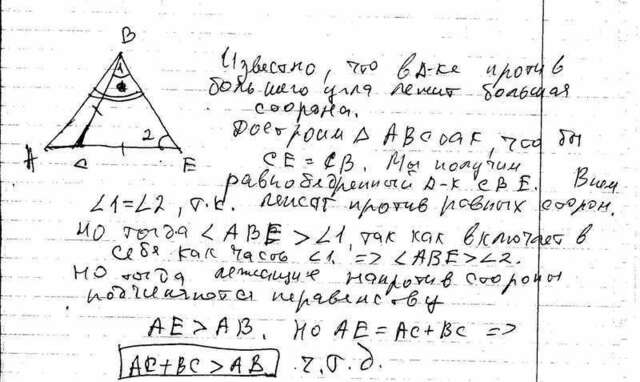 B
1
2
A C E
Известно, что в Δ-ке против
большего угла лежит большая
сторона.
Достроим Δ ABC так, что бы
CE = CB. Мы получим
равнобедренный Δ-к CBE. В нем
∠1=∠2, т.к. лежат против равных сторон.
Но тогда ∠ABE > ∠1, так как включает в
себя как часть ∠1. => ∠ABE>∠2.
Но тогда лежащие напротив стороны
подчиняются неравенству
AE > AB. Но AE = AC + BC =>
AC + BC > AB. ч.т.д.